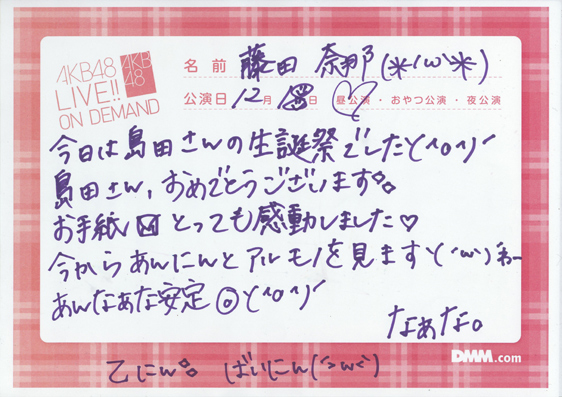 AKB48
LIVE!!
ON DEMAND
AKB
48
名前 藤田 奈那(*´ω`*)
公演日 12月 日 昼公演・おやつ公演・夜公演
今日は島田さんの生誕祭でしたヽ(^o^)ノ
島田さん、おめでとうございます。
お手紙とっても感動しました♡
今からあんにんとアルモノを見ますヽ(´ω`)ノわー
あんなあな安定◎ヽ(^o^)ノ
なぁな。
乙にん。 ばいにん(´>ω<`)
DMM.com